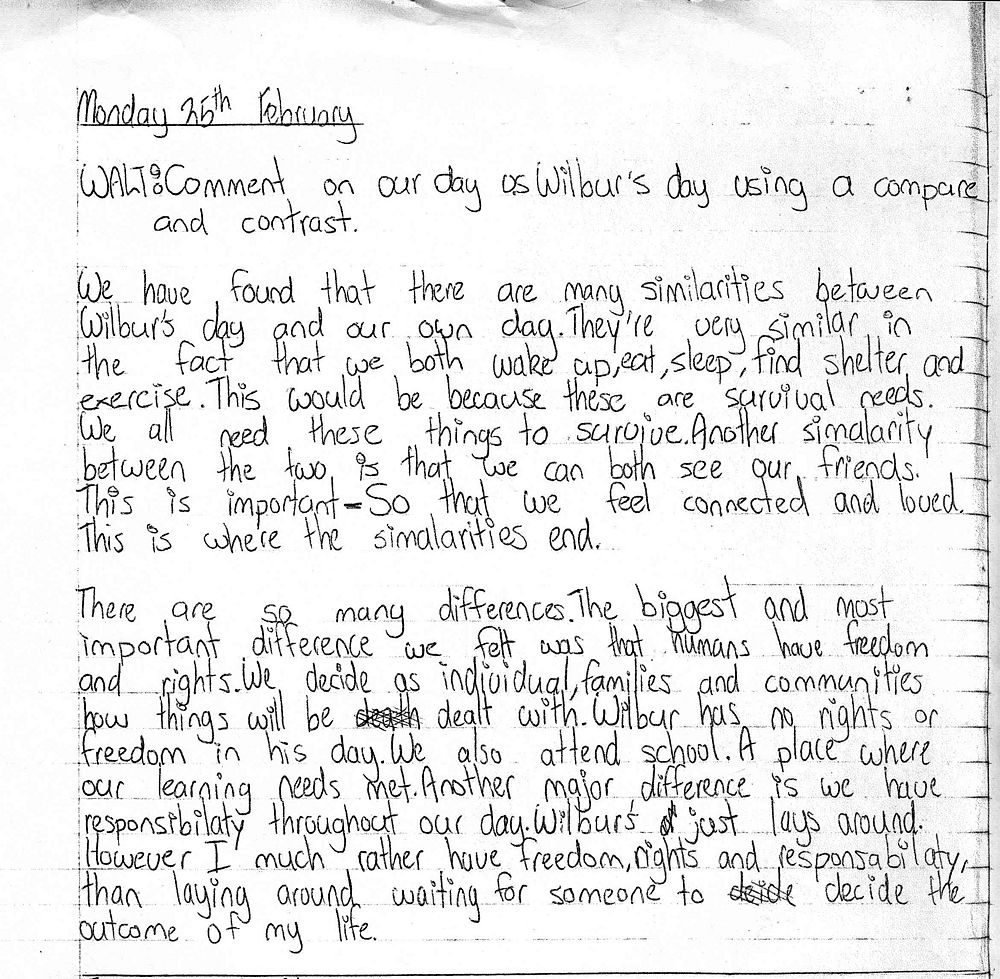 Monday 25th February
WALT: Comment on our day as Wilbur's day using a compare
and contrast.
We have found that there are many similarities between
Wilbur's day and our own day. They're very similar in
the fact that we both wake up, eat, sleep, find shelter and
exercise. This would be because these are survival needs.
We all need these things to survive. Another simalarity
between the two is that we can both see our friends.
This is important - So that we feel connected and loved.
This is where the simalarities end.
There are so many differences. The biggest and most
important difference we felt was that humans have freedom
and rights. We decide as individual, families and communities
how things will be dealt with. Wilbur has no rights or
freedom in his day. We also attend school. A place where
our learning needs met. Another major difference is we have
responsibilaty throughout our day. Wilbur's just lays around.
However I much rather have freedom, rights and responsabilaty,
than laying around waiting for someone to decide the
outcome of my life.